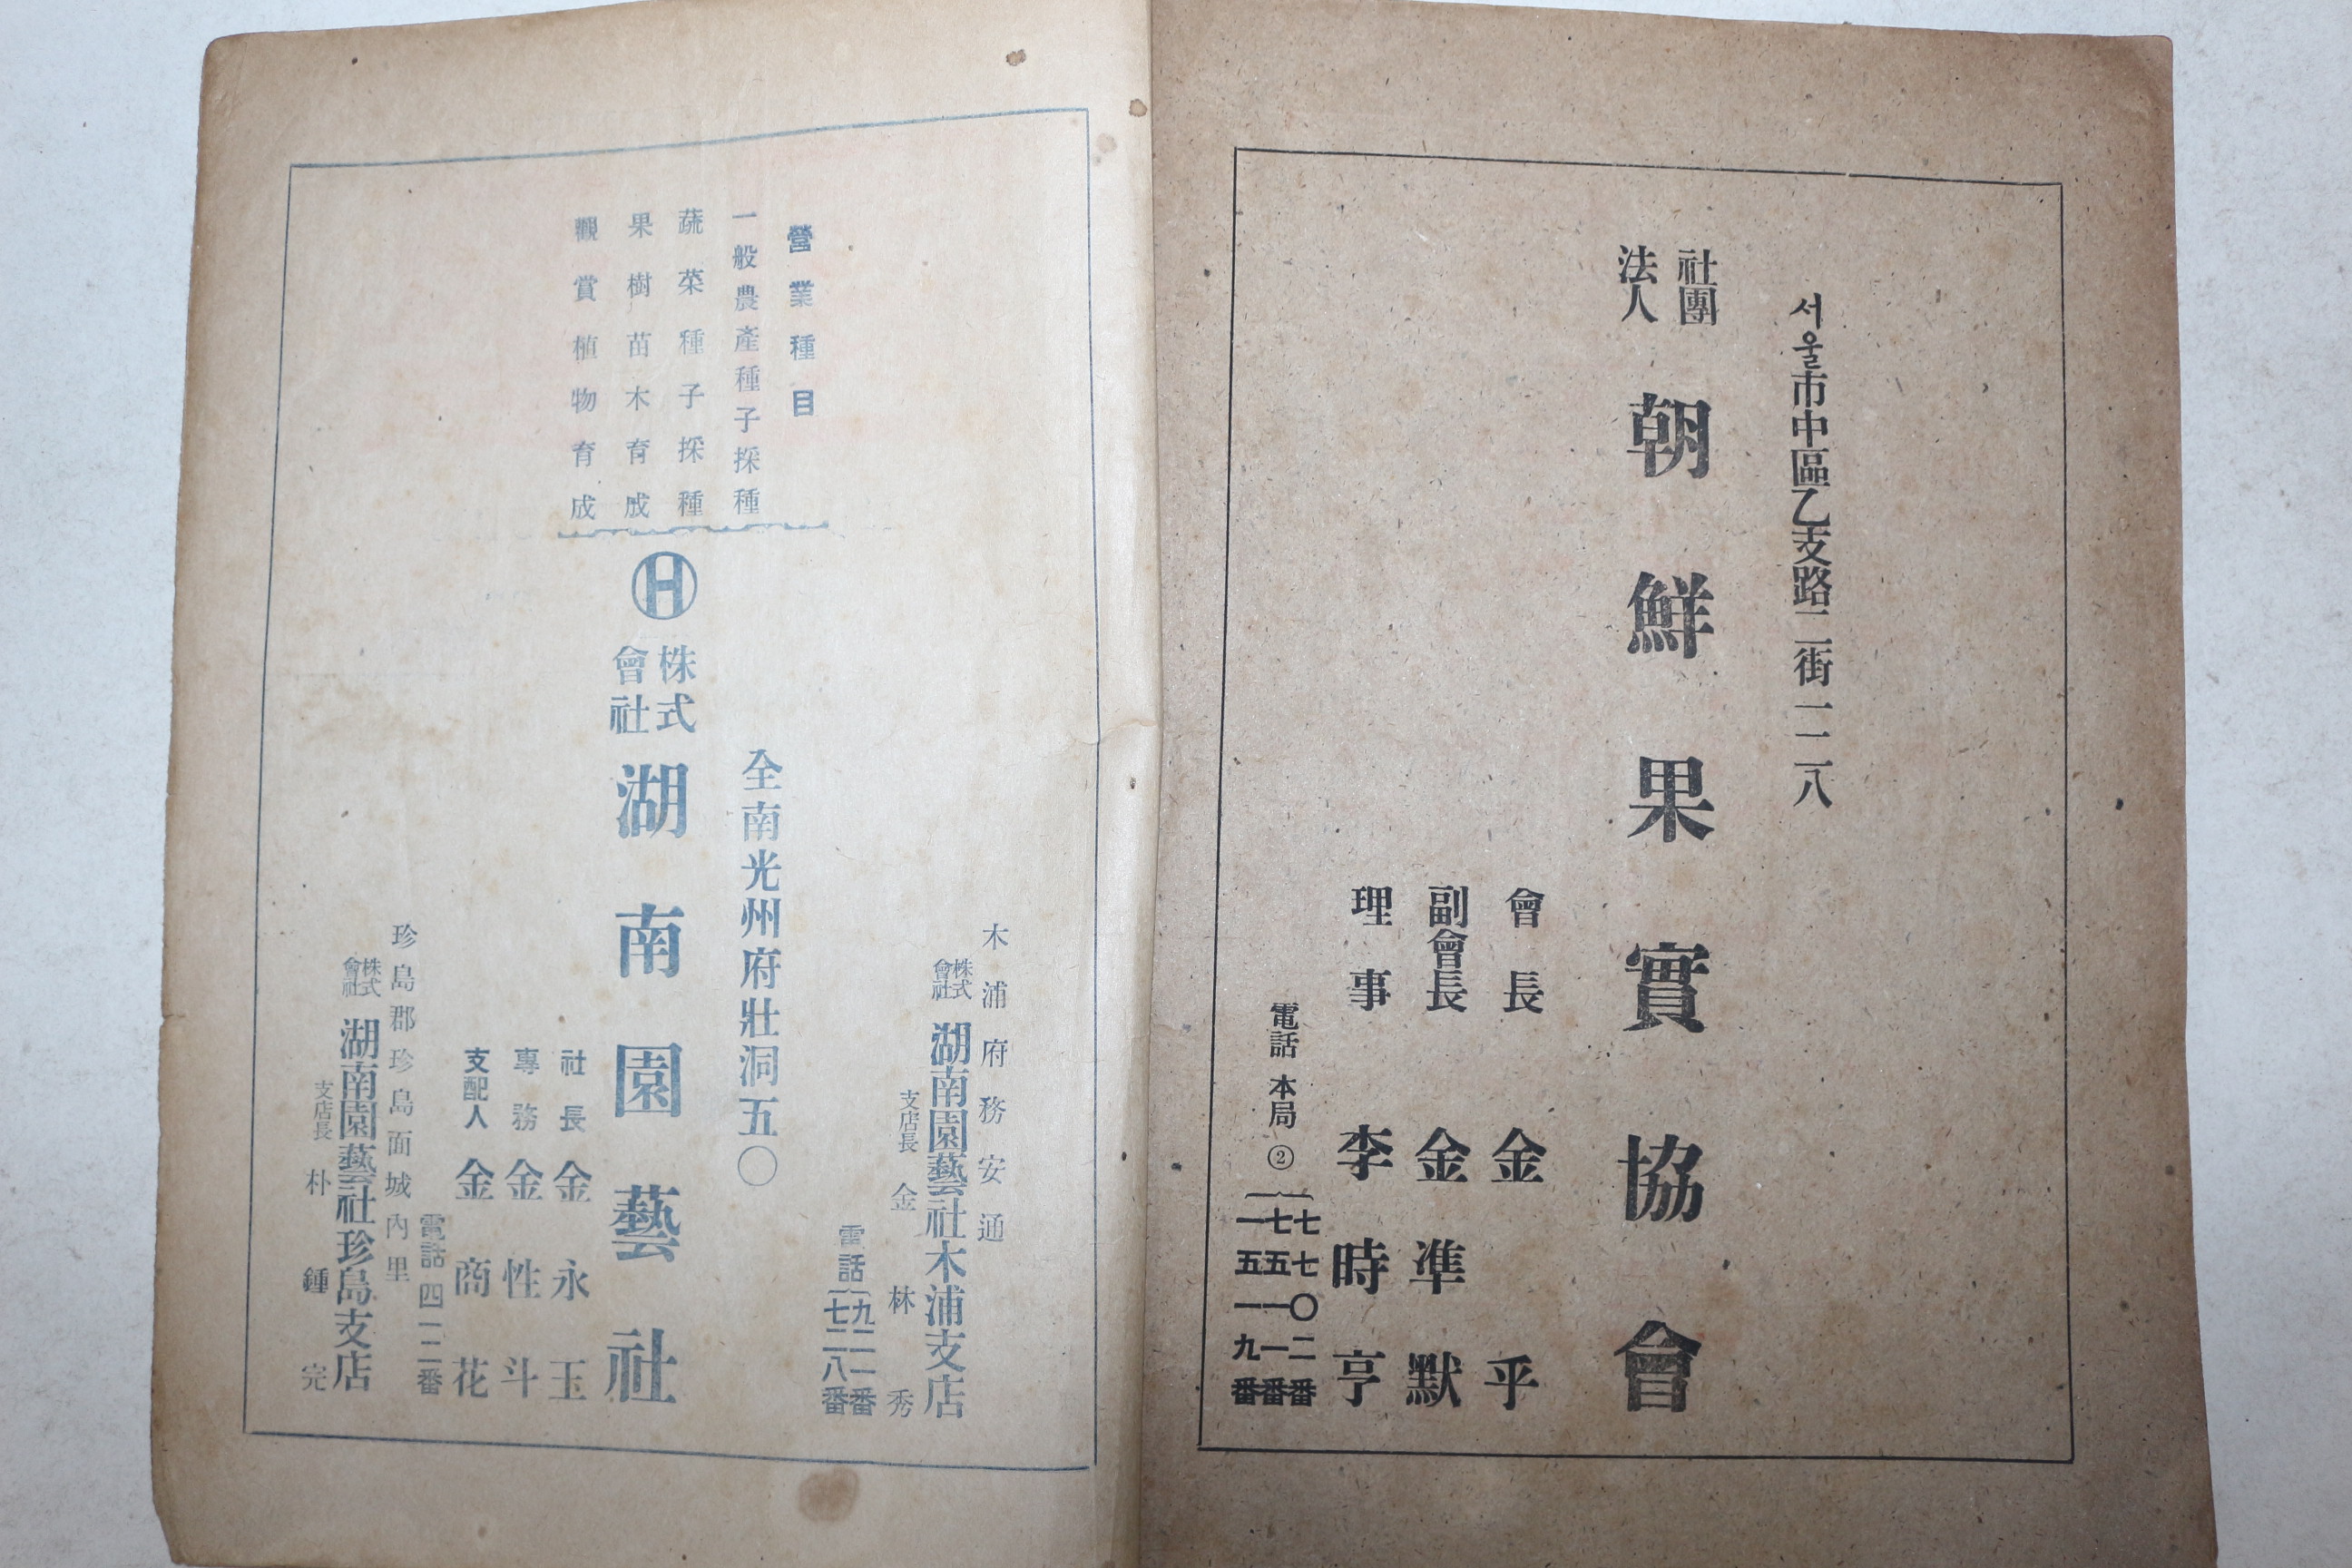 서울市中區乙支路二街一二八
社團法人 朝鮮果實協會
會長 金乎
副會長 金準默
理事 李時亨
電話 本局② 七七〇二番
七五一一番
一五一九番
木浦府務安通
株式會社 湖南園藝社木浦支店
支店長 金林秀
電話 九二一番
七二八番
營業種目
一般農產種子採種
蔬菜種子採種
果樹苗木育成
觀賞植物育成
全南光州府壯洞五〇
H
株式會社 湖南園藝社
社長 金永玉
專務 金性斗
支配人 金商花
電話 四一二番
珍島郡珍島面城內里
株式會社 湖南園藝社珍島支店
支店長 朴鍾完